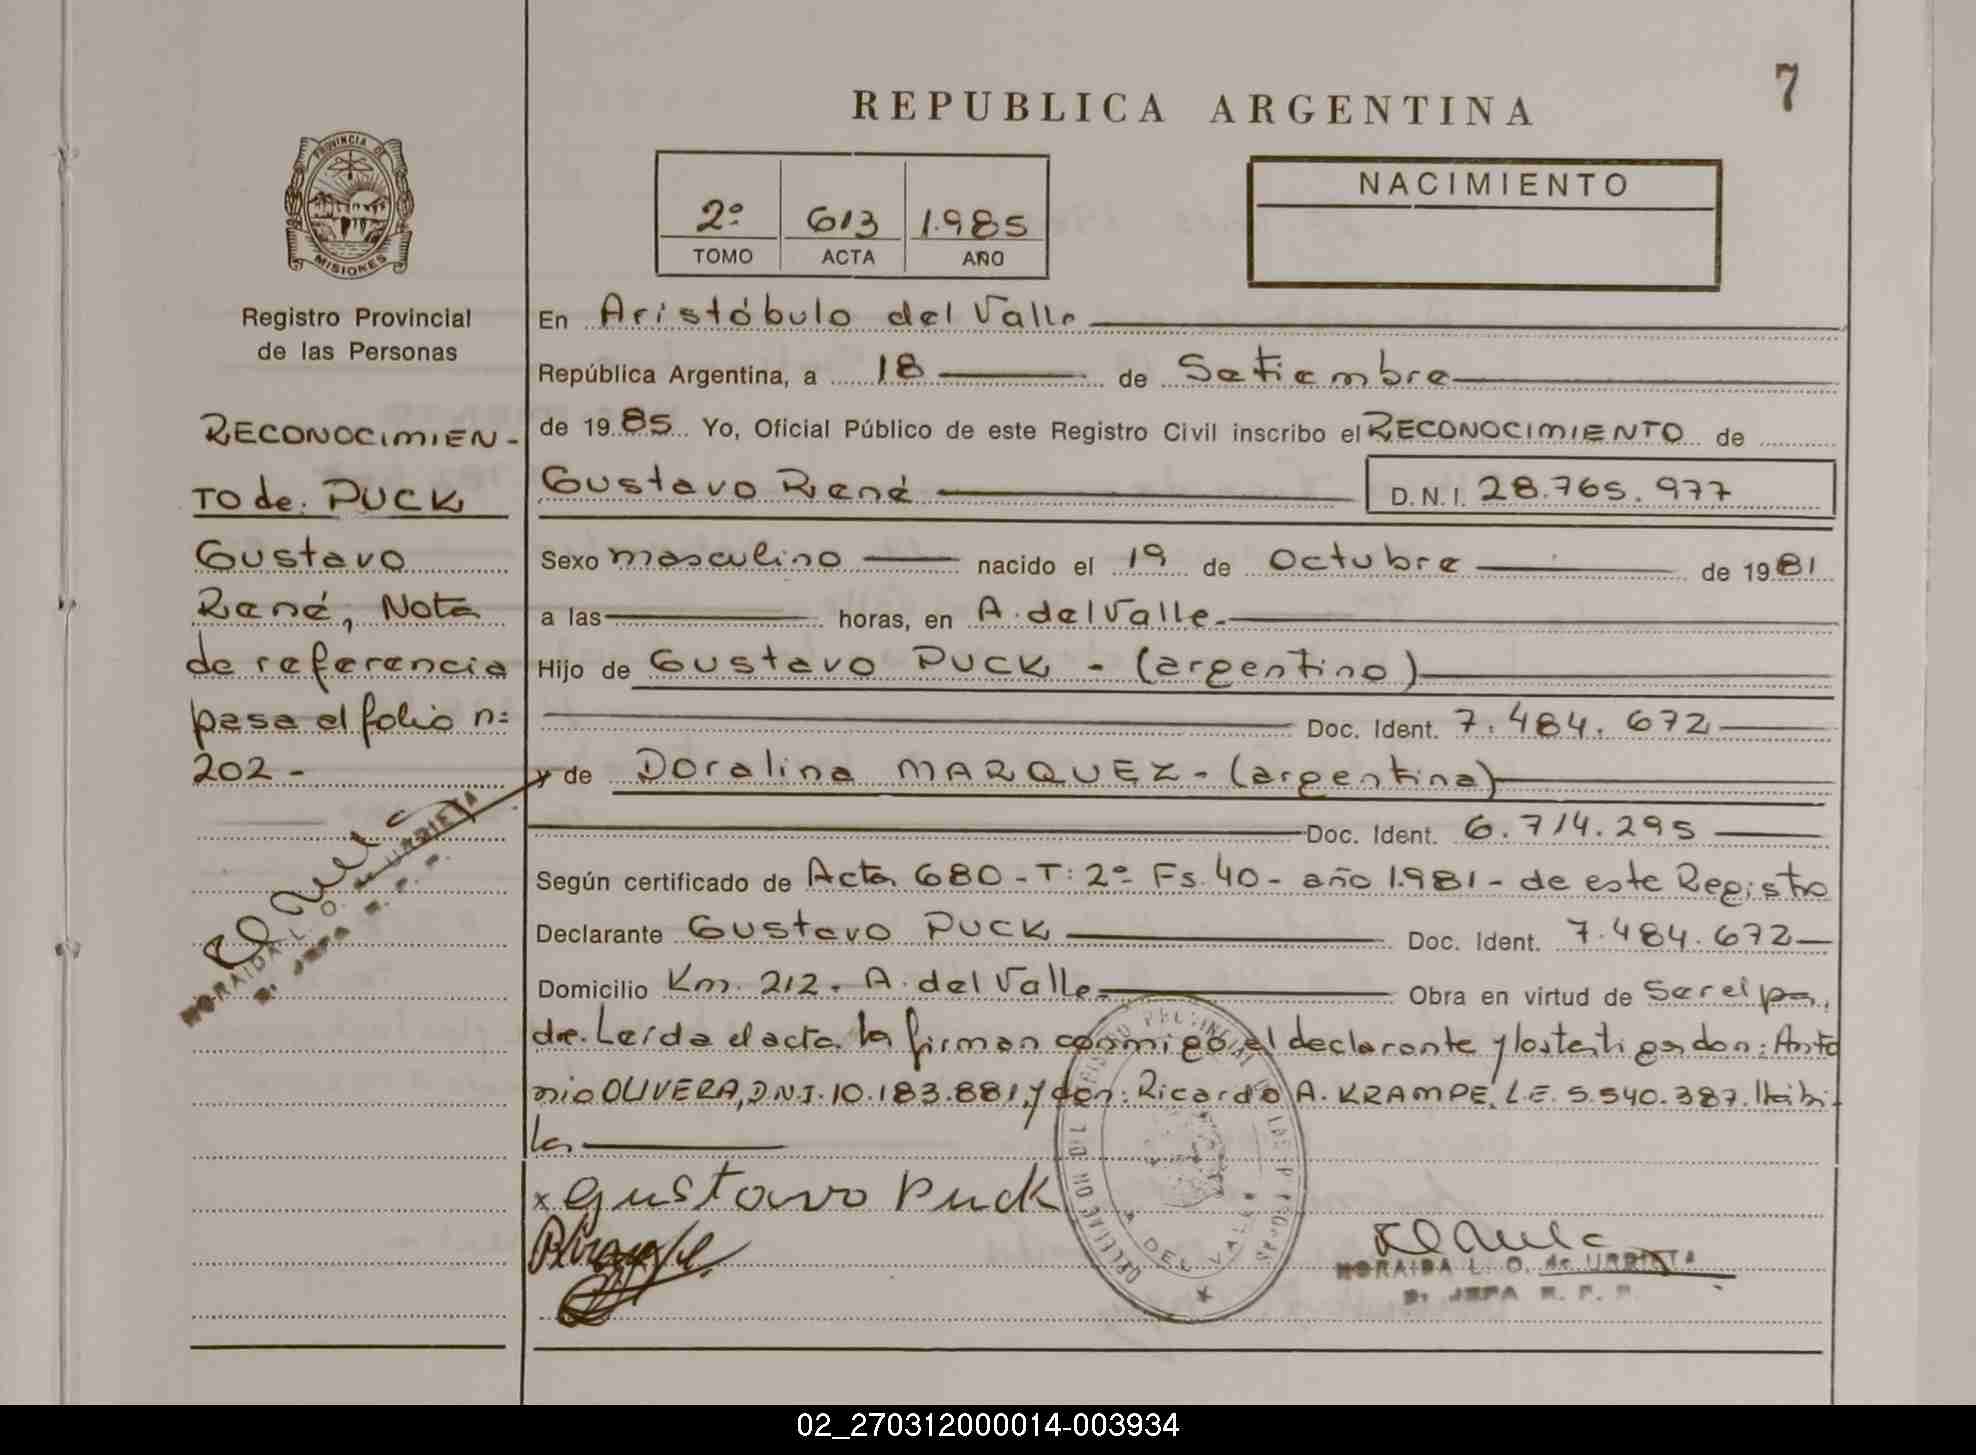 7
REPUBLICA ARGENTINA
PROVINCIA DE
MISIONES
Registro Provincial
de las Personas
2º 613 1.985
TOMO ACTA AÑO
NACIMIENTO
RECONOCIMIEN-
TO de: PUCK
Gustavo
René, Nota
de referencia
pasa al folio nº
202 -
NORAIDA L. O. de URRIETA
En Aristóbulo del Valle
República Argentina, a 18 de Setiembre
de 1985 Yo, Oficial Público de este Registro Civil inscribo el RECONOCIMIENTO de
Gustavo René D.N.I. 28.765.977
Sexo masculino nacido el 19 de Octubre de 1981
a las horas, en A. del Valle.
Hijo de Gustavo PUCK - (argentino)
Doc. Ident. 7.484.672
y de Doralina MARQUEZ - (argentina)
Doc. Ident. 6.714.295
Según certificado de Acta 680 - T: 2º Fs. 40 - año 1.981 - de este Registro
Declarante Gustavo PUCK Doc. Ident. 7.484.672
Domicilio Km. 212. A. del Valle. Obra en virtud de Ser el pa-
dre. Leída el acta la firman conmigo el declarante y los testigos don: Anto
nio OLIVERA, D.N.I. 10.183.881, y don: Ricardo A. KRAMPE, L.E. 5.540.387. Hábi-
les
x Gustavo Puck
A DEL VALLE
NORAIDA L. O. de URRIETA
JEFA R. P. P.
02_270312000014-003934